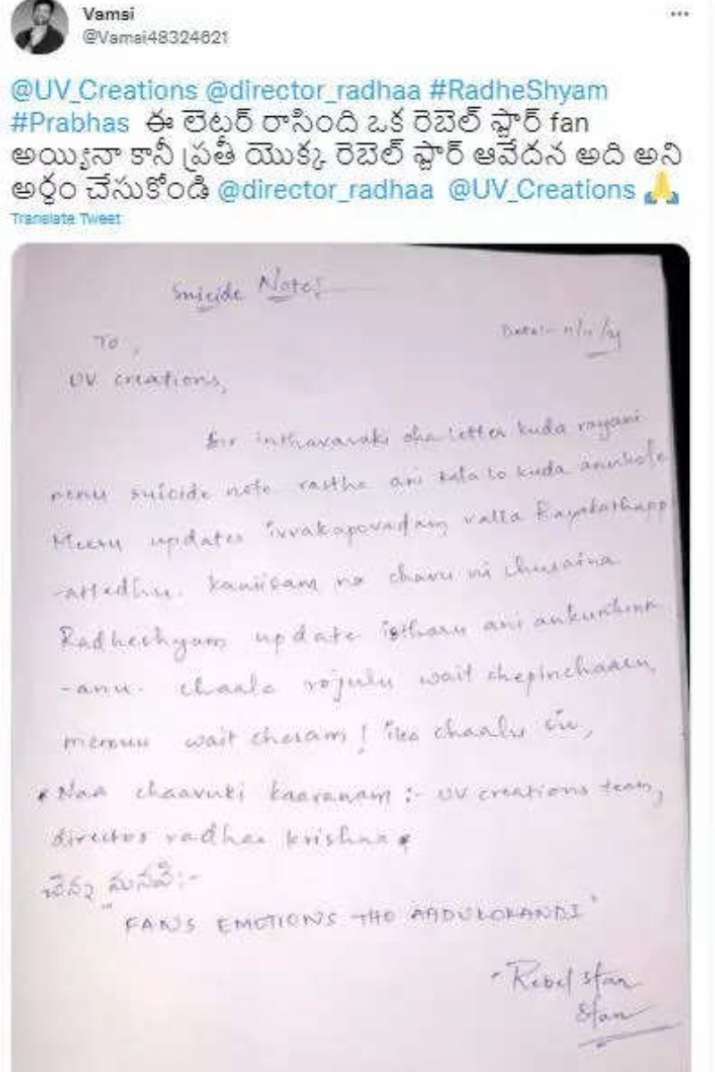 Vamsi
@Vamsi48324621
@UV_Creations @director_radhaa #RadheShyam
#Prabhas ఈ లెటర్ రాసింది ఒక రెబెల్ స్టార్ fan
అయ్యినా కానీ ప్రతీ యొక్క రెబెల్ స్టార్ ఆవేదన అది అని
అర్థం చేసుకోండి @director_radhaa @UV_Creations 🙏
Translate Tweet
Suicide Note:
To,
Date:- 11/11/21
UV creations,
Sir inthavaraki oka letter kuda rayani
nenu suicide note rastha ani kala lo kuda anukole
Meeru updates ivvakapovadam valla Rayakathapp
-atledhu. kaniisam na chavu ni chusaina
Radheshyam update istharu ani ankuntunn
-anu. chaala rojulu wait chepinchaaru,
memuu wait chesam! ika chaalu sir,
* Naa chaavuki kaaranam :- UV creations team,
director radhaa krishna *
చిన్న మనవి:-
"FANS EMOTIONS THO AADUKOKANDI"
- Rebel star